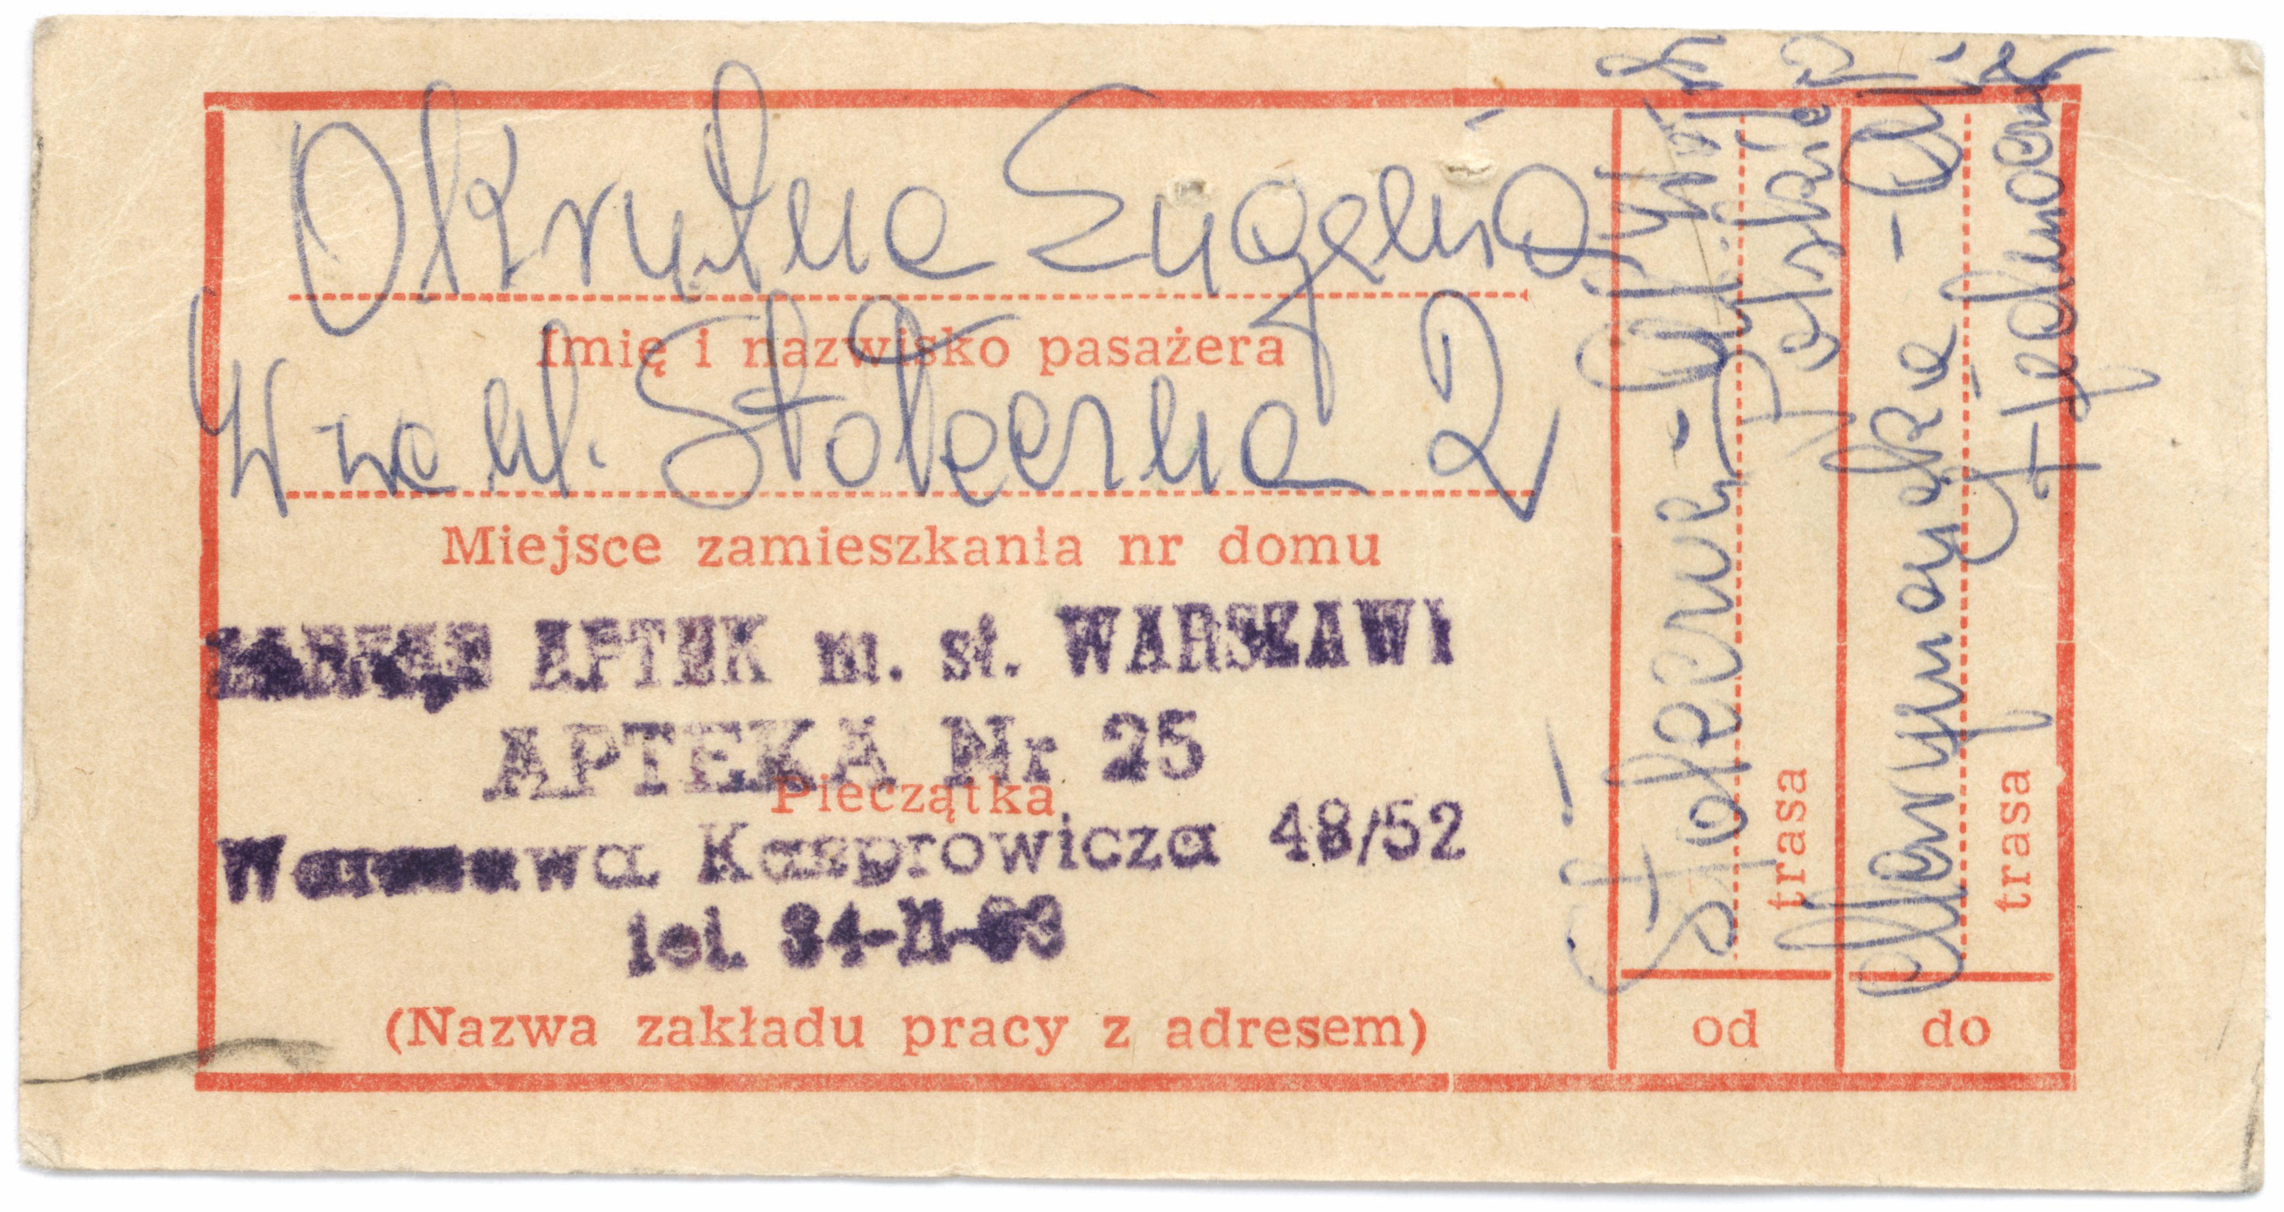 Okrutna Eugenia
Imię i nazwisko pasażera
W-wa ul. Stołeczna 2
Miejsce zamieszkania nr domu
ZARZĄD APTEK m. st. WARSZAWY
APTEKA Nr 25
Pieczątka
Warszawa Kasprowicza 48/52
tel. 34-11-
(Nazwa zakładu pracy z adresem)
Stołeczna -
trasa
od
Marymoncka -
trasa
do